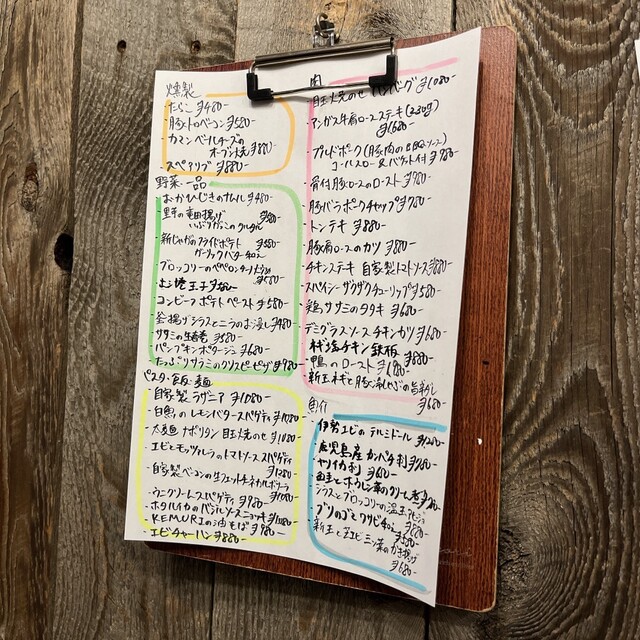 燻製
たらこ ¥480-
・豚トロベーコン ¥580-
・カマンベールチーズの
オーブン焼 ¥880-
・スペアリブ ¥880-
野菜・一品
おかひじきのナムル ¥480-
新じゃがのフライドポテト ¥580-
ガーリックバター
・ブロッコリーのペペロンチーノ
¥580-
・コンビーフポテトペースト ¥580-
・釜揚げシラスとニラのお浸し ¥480-
・サラミの ¥580-
・パンプキンポタージュ ¥680-
・たっぷりサラミのクリスピーピザ ¥780-
パスタ・飯・麺
・自家製ラザニア ¥1080-
のレモンバタースパゲティ ¥1080-
・太麺ナポリタン 目玉焼のせ ¥1080-
・エビとモッツァレラのトマトソーススパゲティ
¥1280-
・自家製ベーコンの生フェットチーネカルボナーラ
¥1080-
・ウニクリームスパゲティ ¥980-
・ホタルイカのバジルソース ¥1080-
・KEMURIの油そば ¥980-
・エビチャーハン ¥880-
肉
・目玉焼のせハンバーグ ¥1080-
・アンガス牛肩ロースステーキ(230g)
¥1680-
・プルドポーク(豚肉のBBQソース)
コールスロー&バケット付 ¥780-
・骨付豚ロースのロースト ¥780-
・豚バラポークチャップ ¥780-
・トンテキ ¥880-
・豚肩ロースのカツ ¥880-
・チキンステーキ 自家製トマトソース ¥880-
・スペイシーザクザクチューリップ ¥580-
・鶏ササミのタタキ ¥680-
・デミグラスソースチキンカツ ¥680-
チキン鉄板 ¥880-
・鴨のロースト ¥1680-
・新玉ネギと豚
¥680-
魚介
・伊勢エビのテルミドール ¥1280-
・鹿児島産カンパチ刺 ¥780-
・ヤリイカ刺 ¥680-
・シラスとブロッコリーの
・ブリのゴマワサビ和え ¥580-
・新玉と芝エビと三ツ葉のかき揚げ
¥680-